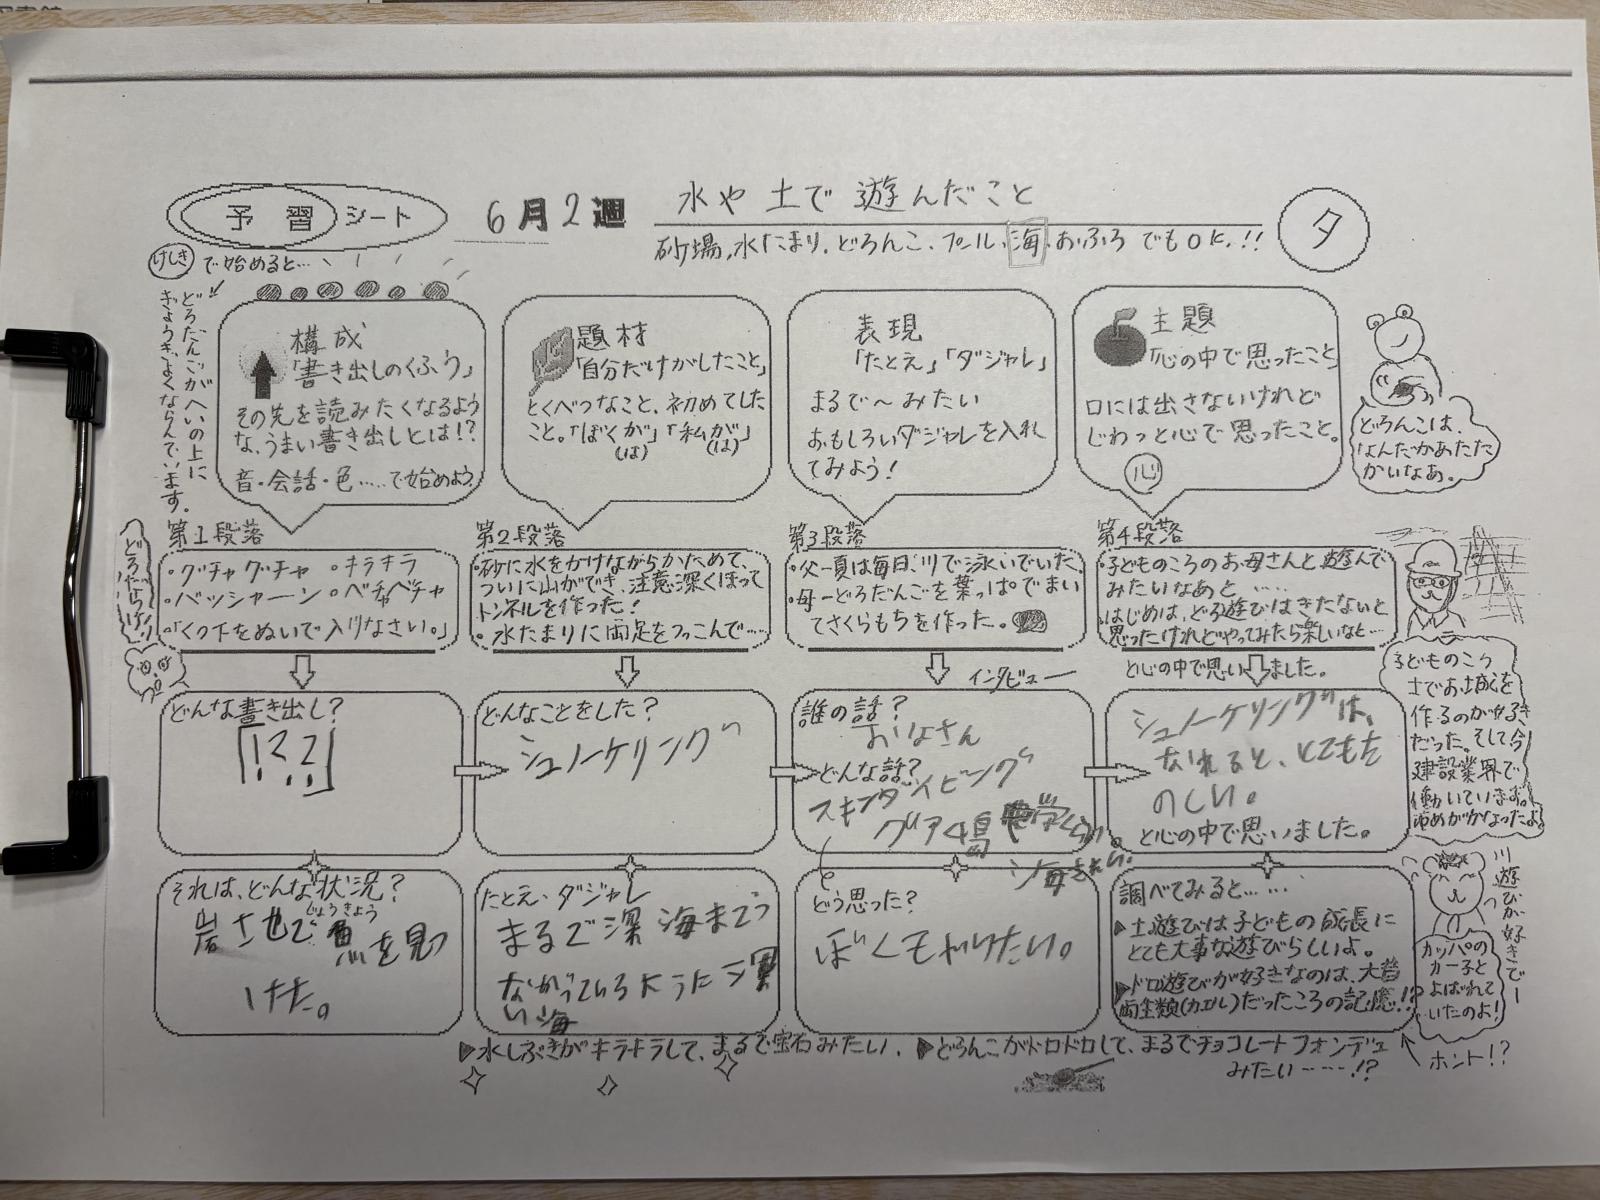 予習シート
6月2週
水や土で遊んだこと
砂場、水たまり、どろんこ、プール、海、おふろでもOK!!
夕
けしきで始めると…
どろだんごがへいの上に
ぎょうぎよくならんでいます。
構成
「書き出しのくふう」
その先を読みたくなるよう
な、うまい書き出しとは!?
音・会話・色……で始めよう
題材
「自分だけがしたこと」
とくべつなこと、初めてした
こと。「ぼくが」「私が」
(は) (は)
表現
「たとえ」「ダジャレ」
まるで〜みたい
おもしろいダジャレを入れ
てみよう!
主題
「心の中で思ったこと」
口には出さないけれど
じわっと心で思ったこと。
心
どろんこは、
なんだかあたた
かいなあ。
第1段落
・グチャグチャ ・キラキラ
・バッシャーン ・ベチャベチャ
・「くつ下をぬいで入りなさい。」
どろだらけ!!
第2段落
・砂に水をかけながらかためて、
ついに山ができ、注意深くほって
トンネルを作った!
・水たまりに両足をつっこんで……
第3段落
・父―夏は毎日、川で泳いでいた。
・母―どろだんごを葉っぱでまい
てさくらもちを作った。
第4段落
・子どものころのお母さんと遊んで
みたいなあと……
・はじめは、どろ遊びはきたないと
思ったけれどやってみたら楽しいなと…
と心の中で思いました。
子どものころ
土でお城を
作るのが好き
だった。そして今
建設業界で
働いています。
ゆめがかなったよ。
どんな書き出し?
「!??」
どんなことをした?
シュノーケリング
インタビュー
誰の話?
おりょさん
どんな話?
スキンダイビング
グアム島
海きれい。
シュノーケリングは、
なれると、とてもた
のしい。
と心の中で思いました。
それは、どんな状況?
じょうきょう
岩さ地で魚を見つ
けた。
たとえ・ダジャレ
まるで深海までつ
ながっているような深
い海
どう思った?
ぼくもやりたい。
調べてみると……
▶土遊びは子どもの成長に
とても大事な遊びらしいよ。
▶ドロ遊びが好きなのは、大昔
両生類(カエル)だったころの記憶!?
川遊びが好きでー
カッパの
カー子と
よばれて
いたのよ!
ホント!?
▶水しぶきがキラキラして、まるで宝石みたい。
▶どろんこがドロドロして、まるでチョコレートフォンデュ
みたい……!?